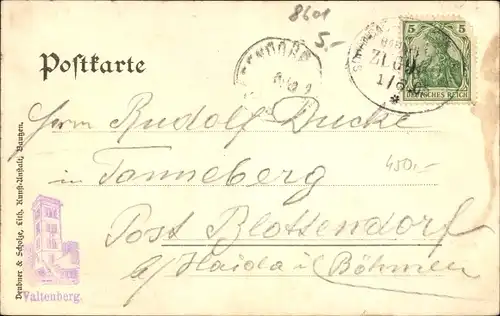 8601
5.-
5 5
DEUTSCHES REICH
Postkarte
Herrn Rudolf Ducke
in Tanneberg
450.-
Post Blottendorf
a/Haida in Böhmen
Deubner & Scholze, Lith. Kunst-Anstalt, Bautzen.
Valtenberg.